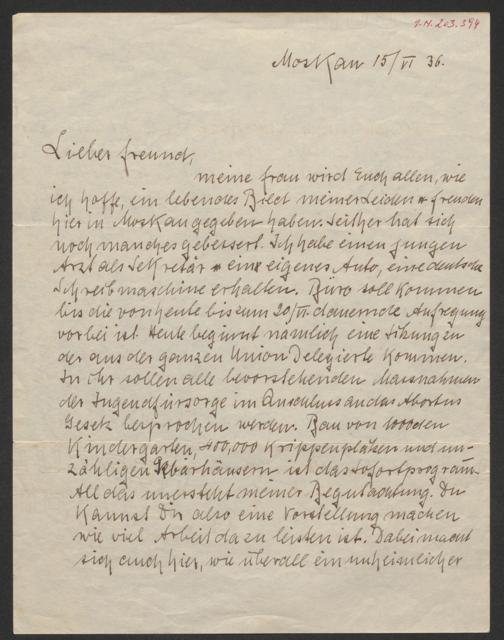 I.N. 203.394
Moskau 15/VI 36.
Lieber Freund,
meine Frau wird Euch allen, wie
ich hoffe, ein lebendes Bield meiner Leiden u freuden
hier in Moskau gegeben haben. Seither hat sich
noch manches gebessert. Ich habe einen jungen
Arzt als Sekretär u ein eigenes Auto, eine deutsche
Schreibmaschine erhalten. Büro soll kommen
bis die von heute bis zum 20/VI dauernde Aufregung
vorbei ist. Heute beginnt nämlich eine Sitzung zu
der aus der ganzen Union Delegierte kommen.
In ihr sollen alle bevorstehenden Massnahmen
der Jugendfürsorge im Anschluss an das Abortus
Gesetz besprochen werden. Bau von 1000den
Kindergärten, 400,000 Krippenplätzen und un-
zähligen Gebärhäusern ist das sofortprogram.
All das untersteht meiner Begutachtung. Du
kannst Dir also eine Vorstellung machen
wie viel Arbeit da zu leisten ist. Dabei macht
sich auch hier, wie überall ein unheimlicher